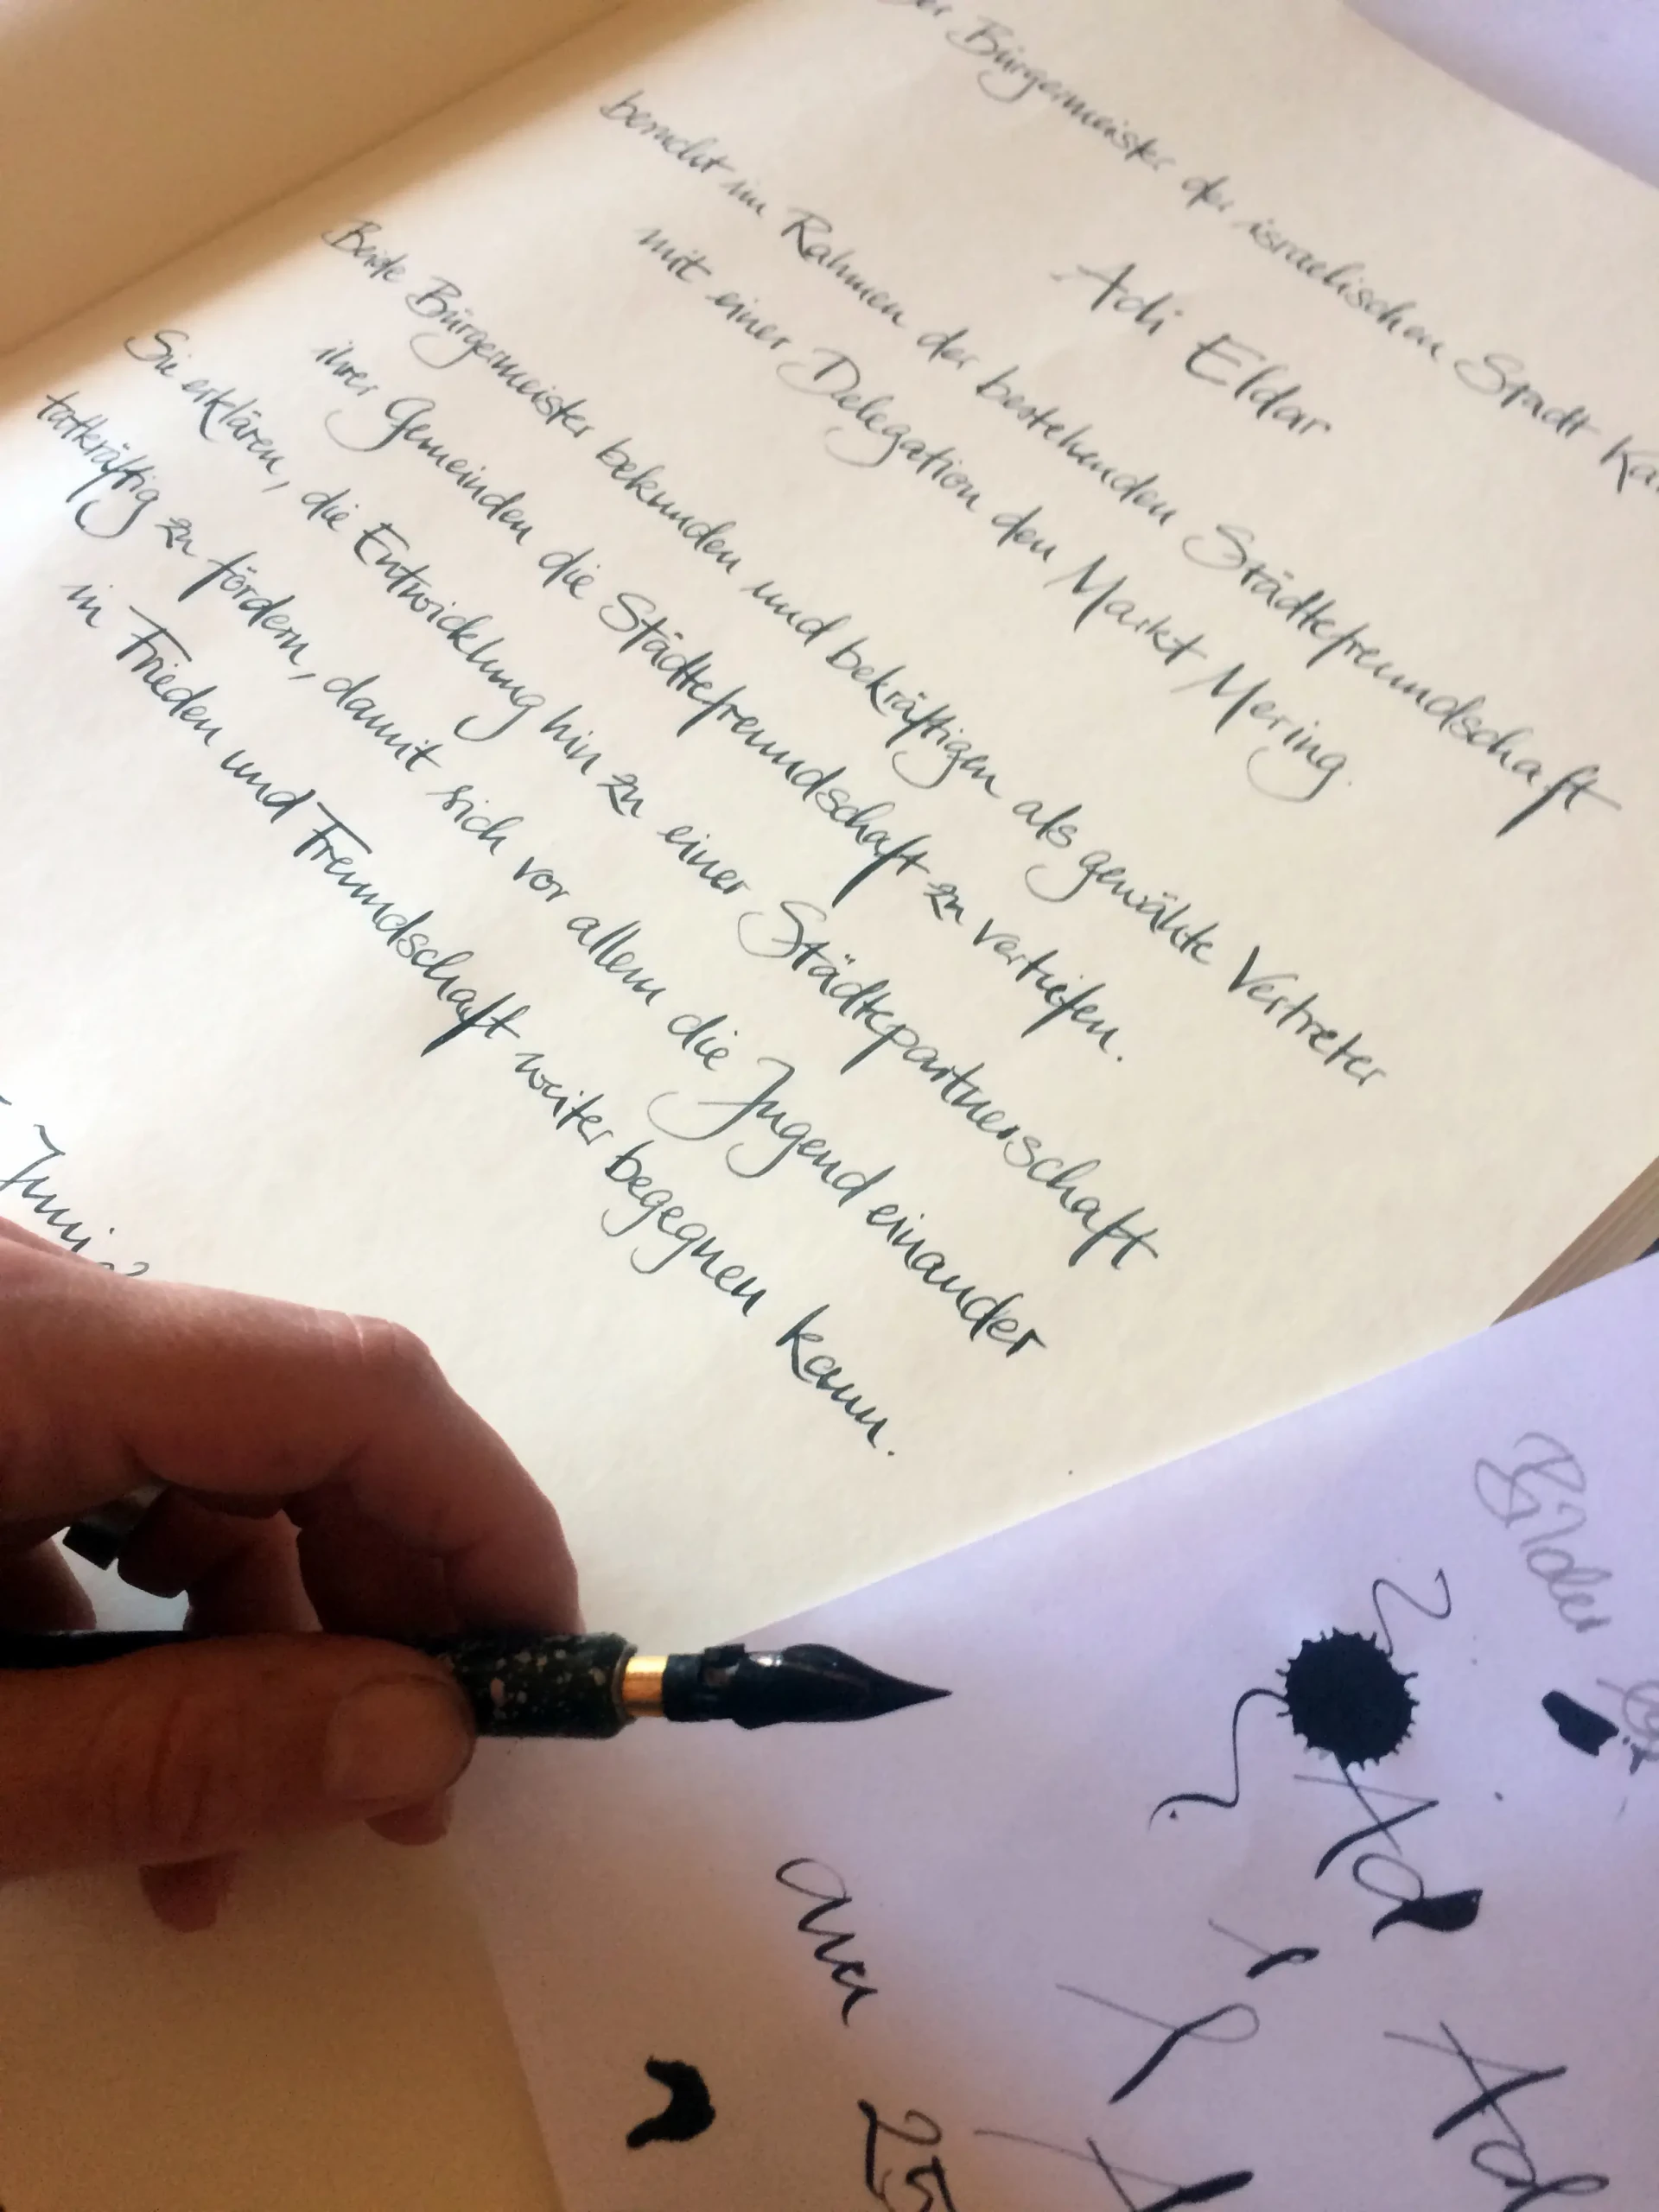 Bürgermeister der israelischen Stadt
Adi Eldar
besucht im Rahmen der bestehenden Städtefreundschaft
mit einer Delegation den Markt Mering.
Beide Bürgermeister bekunden und bekräftigen als gewählte Vertreter
ihrer Gemeinden die Städtefreundschaft zu vertiefen.
Sie erklären, die Entwicklung hin zu einer Städtepartnerschaft
tatkräftig zu fördern, damit sich vor allem die Jugend einander
in Frieden und Freundschaft weiter begegnen kann.
Juni
Bilder
Ad
am
Ad
25